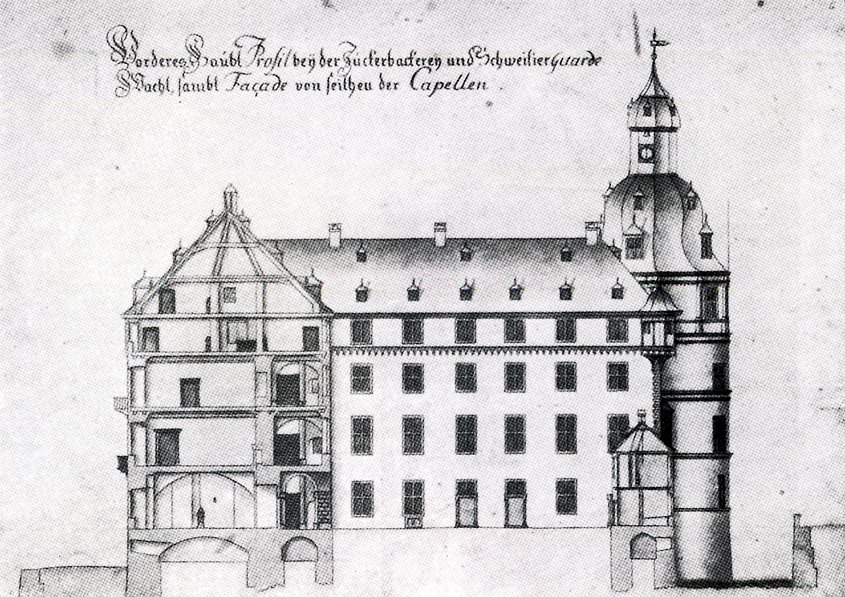 Vorderes Haubt Profil bey der Zuckerbackerey und Schweitzer Guarde
Wacht, sambt Façade von seithen der Capellen.